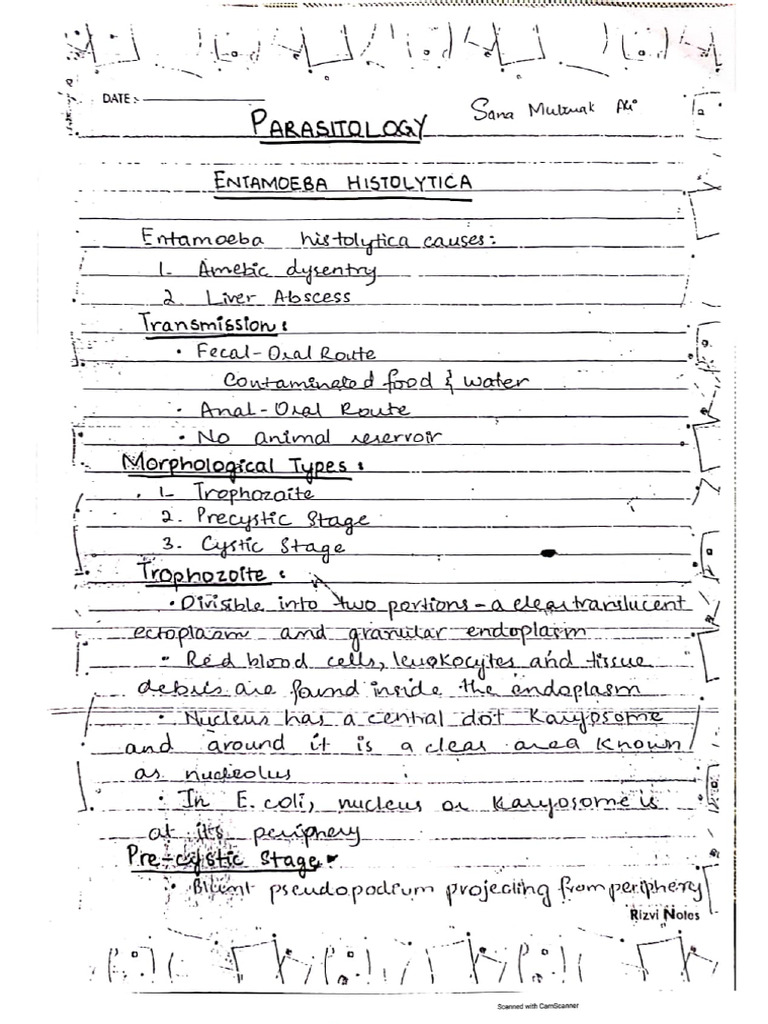 DATE :-
Sana Mubarak Ali
PARASITOLOGY
ENTAMOEBA HISTOLYTICA
Entamoeba histolytica causes:
1. Amebic dysentry
2. Liver Abscess
Transmission:
• Fecal-Oral Route
Contaminated food & water
• Anal-Oral Route
• No animal reservoir
Morphological Types:
1. Trophozoite
2. Precystic Stage
3. Cystic Stage
Trophozoite:
• Divisible into two portions - a clear translucent
ectoplasm and granular endoplasm
• Red blood cells, leukocytes and tissue
debris are found inside the endoplasm
• Nucleus has a central dot Karyosome
and around it is a clear area known
as nucleolus
• In E. coli, nucleus or Karyosome is
at its periphery
Pre-cystic Stage
• Blunt pseudopodium projecting from periphery
Rizvi Notes
Scanned with CamScanner